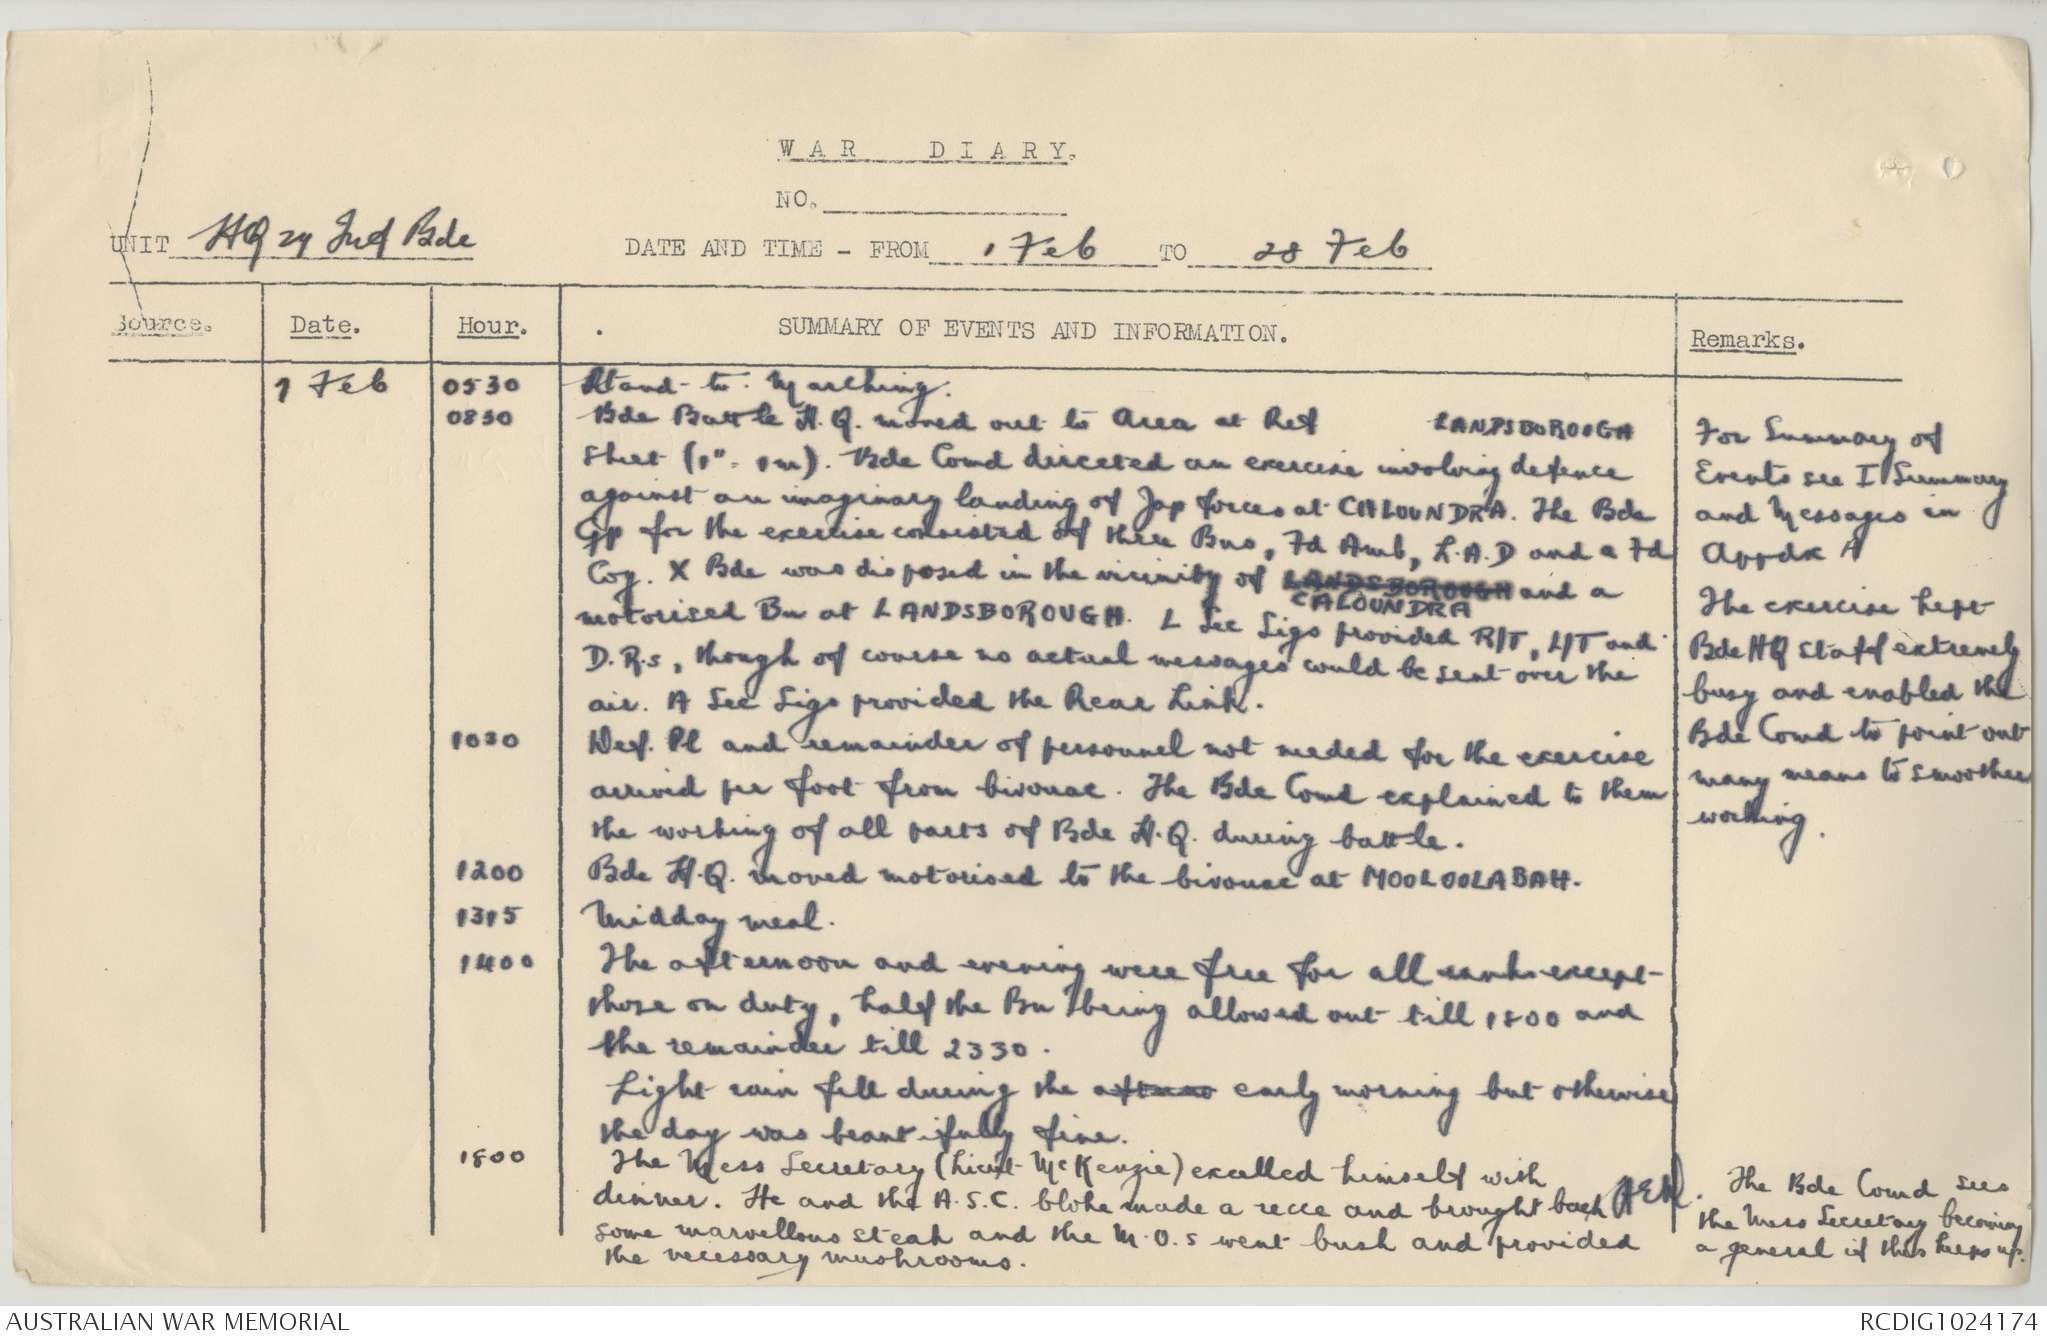 WAR DIARY.
NO.
UNIT HQ 29 Inf Bde DATE AND TIME - FROM 1 Feb TO 28 Feb
Source. Date. Hour. SUMMARY OF EVENTS AND INFORMATION. Remarks.
1 Feb 0530 Stand-to. Marching.
0830 Bde Battle H.Q. moved out to Area at Ref LANDSBOROUGH
Sheet (1" = 1m). Bde Comd directed an exercise involving defence
against an imaginary landing of Jap forces at CALOUNDRA. The Bde
Gp for the exercise consisted of three Bns, Fd Amb, L.A.D and a Fd
Coy. X Bde was disposed in the vicinity of LANDSBOROUGH and a
CALOUNDRA
motorised Bn at LANDSBOROUGH. L Sec Sigs provided R/T, L/T and
D.R.s, though of course no actual messages could be sent over the
air. A Sec Sigs provided the Rear Link.
1030 Def. Pl and remainder of personnel not needed for the exercise
arrived per foot from bivouac. The Bde Comd explained to them
the working of all parts of Bde H.Q. during battle.
1200 Bde H.Q. moved motorised to the bivouac at MOOLOOLABAH.
1315 Midday meal.
1400 The afternoon and evening were free for all ranks except
those on duty, half the Bn being allowed out till 1800 and
the remainder till 2330.
Light rain fell during the early morning but otherwise
the day was beautifully fine.
1800 The Mess Secretary (Lieut McKenzie) excelled himself with
dinner. He and the A.S.C. bloke made a recce and brought back
some marvellous steak and the M.O.s went bush and provided
the necessary mushrooms.
For Summary of
Events see I Summary
and Messages in
Appdx A
The exercise kept
Bde HQ staff extremely
busy and enabled the
Bde Comd to point out
many means to smoother
working.
The Bde Comd sees
the Mess Secretary becoming
a general if this keeps up.
AUSTRALIAN WAR MEMORIAL RCDIG1024174